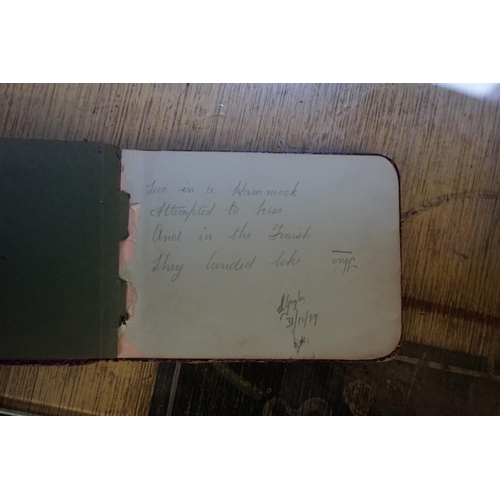 Two in a Hammock
Attempted to kiss
And in the Finish
They landed like this
31/12/29